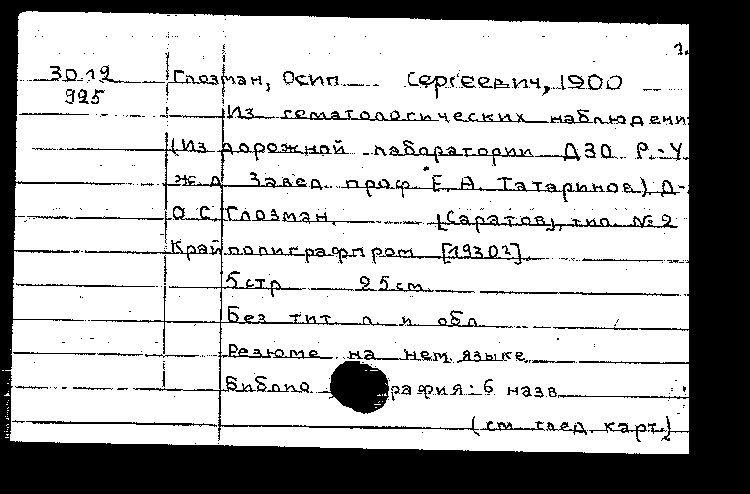 1.
30.19 Глозман, Осип Сергеевич, 1900
925 Из гематологических наблюдени
(Из дорожной лаборатории ДЗО Р.-У.
ж.д. Завед. проф. Е. А. Татаринов) Д-
О.С. Глозман. [Саратов], тип. №2
Крайполиграфпром [1930?].
5 стр 25 см
Без тит. л. и обл.
Резюме на нем. языке
Библиография: 6 назв.
(см. след. карт.)